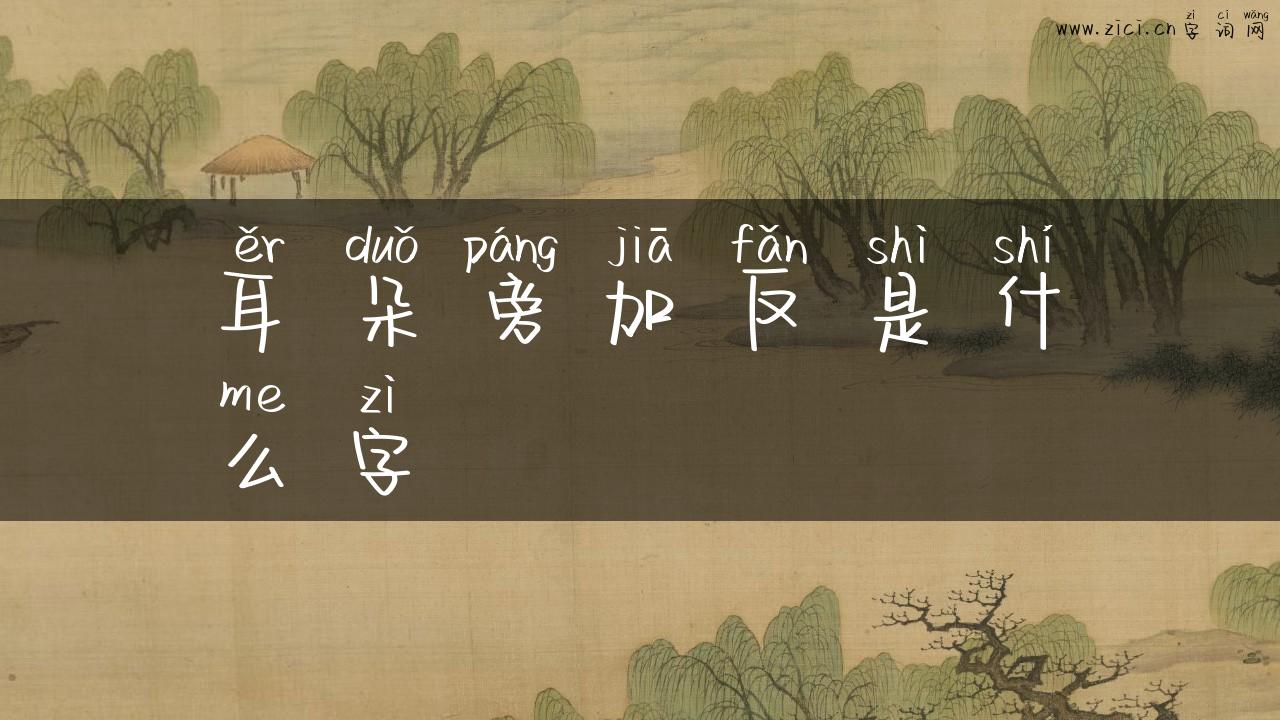 www.zici.cn
zì cí wǎng
字词网
ěr duǒ páng jiā fǎn shì shí
耳朵旁加反是什
me zì
么字